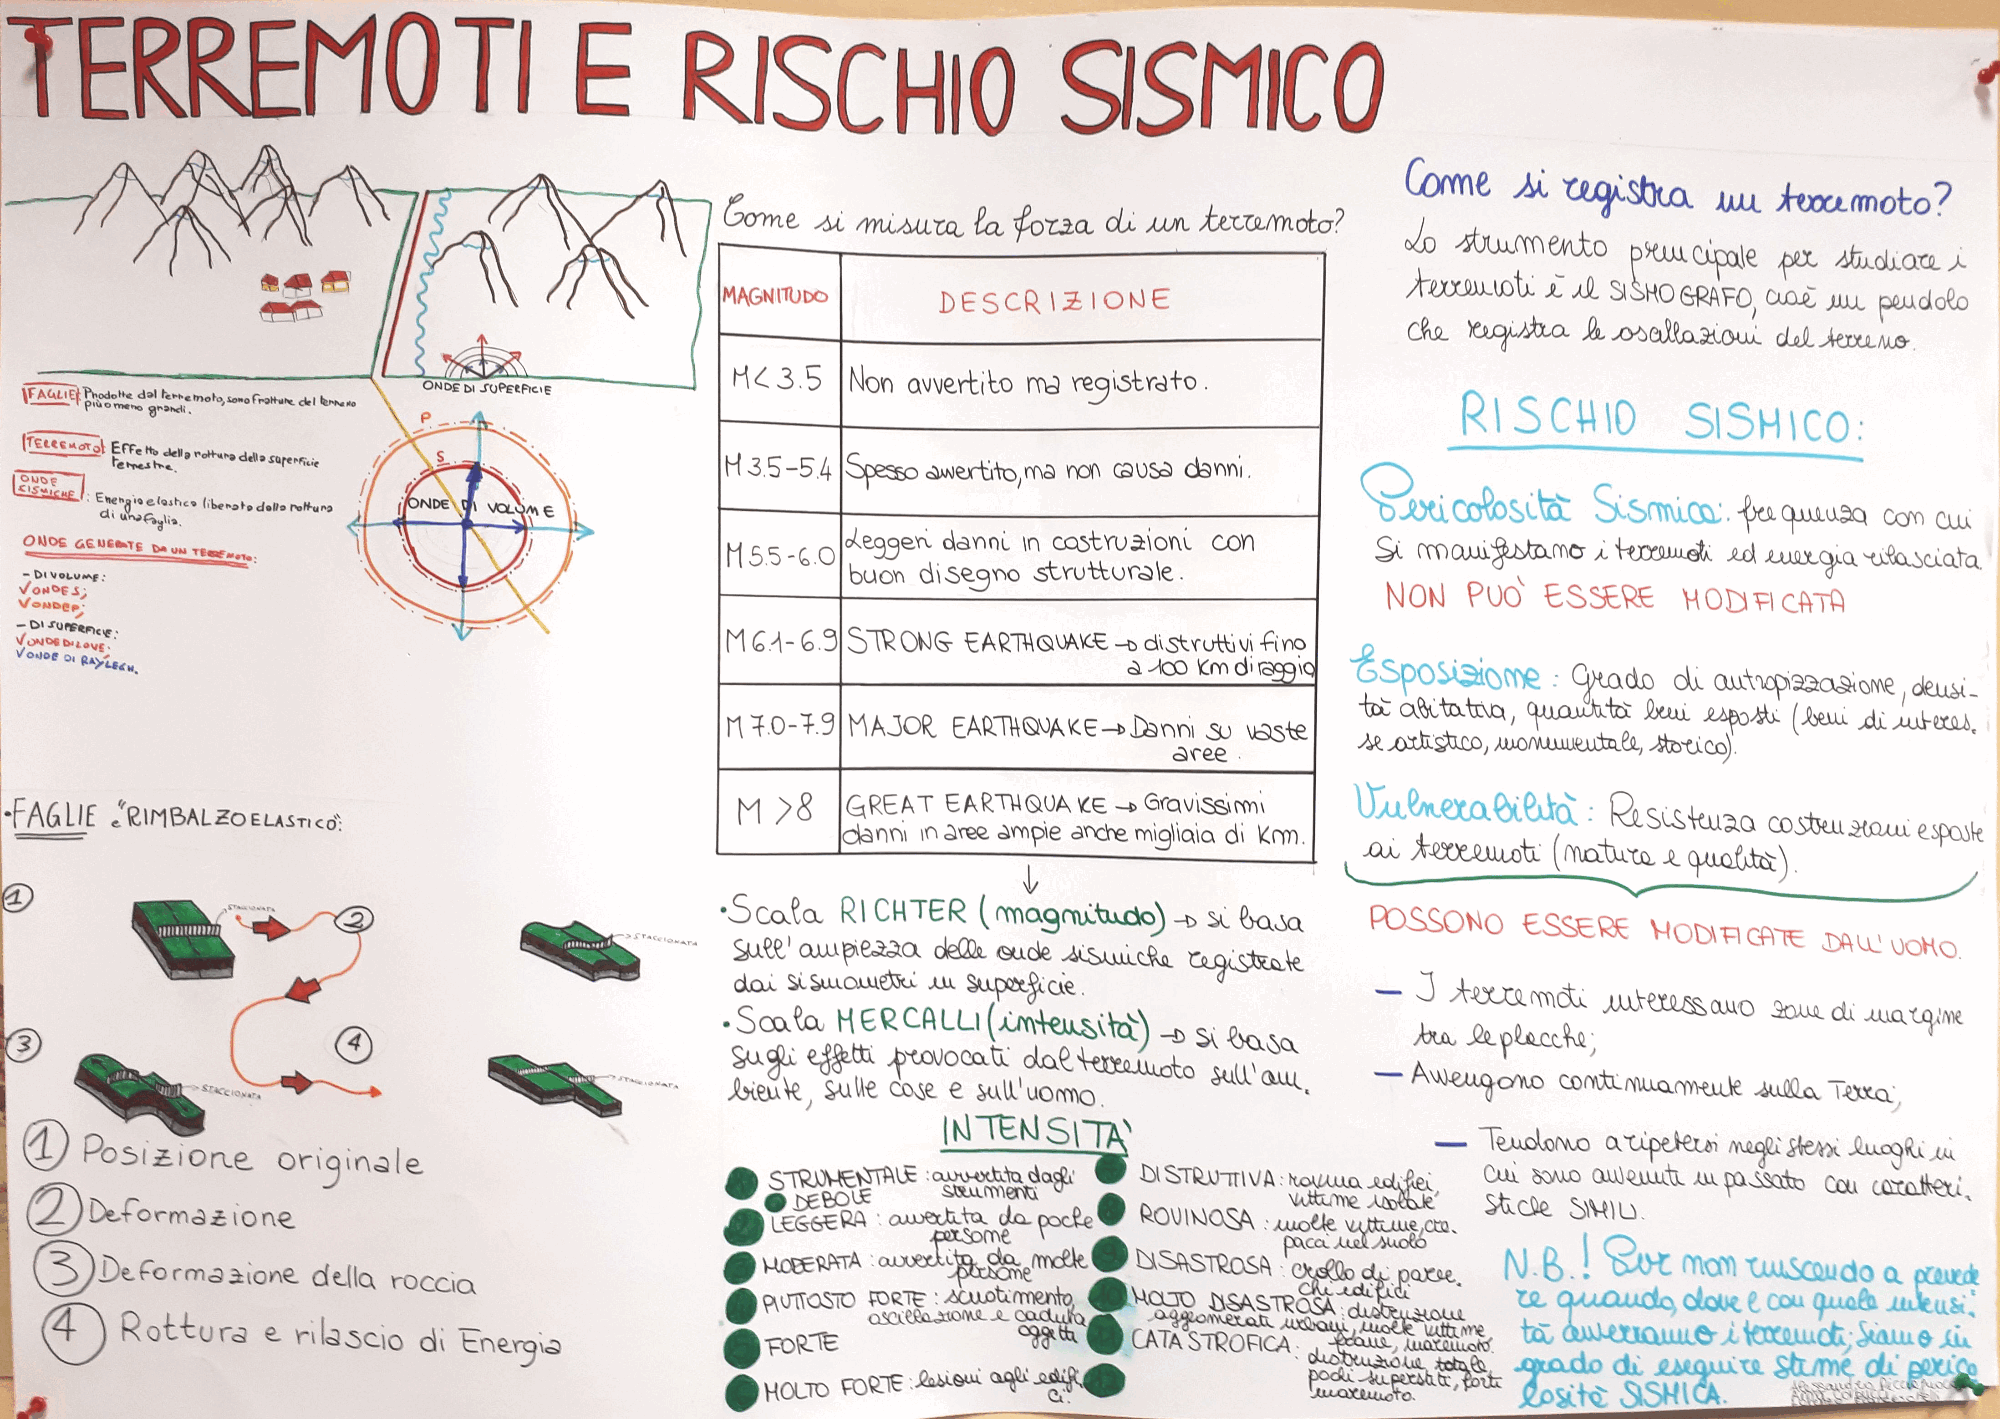 TERREMOTI E RISCHIO SISMICO
ONDE DI SUPERFICIE
FAGLIE: Prodotte dal terremoto, sono fratture del terreno
più o meno grandi.
TERREMOTO: Effetto della rottura della superficie
terrestre.
ONDE
SISMICHE: Energia elastica liberata dalla rottura
di una faglia.
ONDE GENERATE DA UN TERREMOTO:
- DI VOLUME:
ONDE S;
ONDE P;
- DI SUPERFICIE:
ONDE DI LOVE;
ONDE DI RAYLEGH.
P
S
ONDE DI VOLUME
• FAGLIE e "RIMBALZO ELASTICO":
1
STACCIONATA
2
STACCIONATA
3
STACCIONATA
4
STACCIONATA
1 Posizione originale
2 Deformazione
3 Deformazione della roccia
4 Rottura e rilascio di Energia
Come si misura la forza di un terremoto?
MAGNITUDO DESCRIZIONE
M < 3.5 Non avvertito ma registrato.
M 3.5-5.4 Spesso avvertito, ma non causa danni.
M 5.5-6.0 Leggeri danni in costruzioni con
buon disegno strutturale.
M 6.1-6.9 STRONG EARTHQUAKE → distruttivi fino
a 100 Km di raggio
M 7.0-7.9 MAJOR EARTHQUAKE → Danni su vaste
aree.
M >8 GREAT EARTHQUAKE → Gravissimi
danni in aree ampie anche migliaia di Km.
• Scala RICHTER (magnitudo) → si basa
sull'ampiezza delle onde sismiche registrate
dai sismometri in superficie.
• Scala MERCALLI (intensità) → si basa
sugli effetti provocati dal terremoto sull'am.
biente, sulle cose e sull'uomo.
INTENSITA'
STRUMENTALE: avvertita dagli
strumenti
DEBOLE
LEGGERA: avvertita da poche
persone
MODERATA: avvertita da molte
persone
PIUTTOSTO FORTE: scuotimento,
oscillazione e caduta
oggetti
FORTE
MOLTO FORTE: lesioni agli edifi
ci.
DISTRUTTIVA: rovina edifici,
vittime isolate
ROVINOSA: molte vittime, cre.
pacci nel suolo
DISASTROSA: crollo di parec.
chi edifici
MOLTO DISASTROSA: distruzione
agglomerati urbani, molte vittime,
CATASTROFICA: frane, maremoto.
distruzione totale,
pochi superstiti, forte
maremoto.
Come si registra un terremoto?
Lo strumento principale per studiare i
terremoti è il SISMOGRAFO, cioè un pendolo
che registra le oscillazioni del terreno.
RISCHIO SISMICO:
Pericolosità Sismica: frequenza con cui
si manifestano i terremoti ed energia rilasciata.
NON PUO' ESSERE MODIFICATA
Esposizione: Grado di autropizzazione, densi-
tà abitativa, quantità beni esposti (beni di interes.
se artistico, monumentale, storico).
Vulnerabilità: Resistenza costruzioni esposte
ai terremoti (natura e qualità).
POSSONO ESSERE MODIFICATE DALL'UOMO.
— I terremoti interessano zone di margine
tra le placche;
— Avvengono continuamente sulla Terra;
— Tendono a ripetersi negli stessi luoghi in
cui sono avvenuti in passato con caratteri.
stiche SIMILI.
N.B.! Pur non riuscendo a prevede
re quando, dove e con quale intensi-
tà avverranno i terremoti, siamo in
grado di eseguire stime di perico
losità SISMICA.